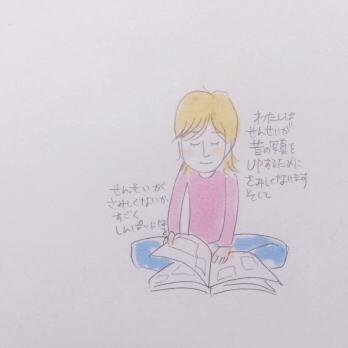 わたしは
せんせいが
昔の写真を
UPするために
さみしくなります
そして
せんせいが
さみしくないか
すごく
しんぱいになる